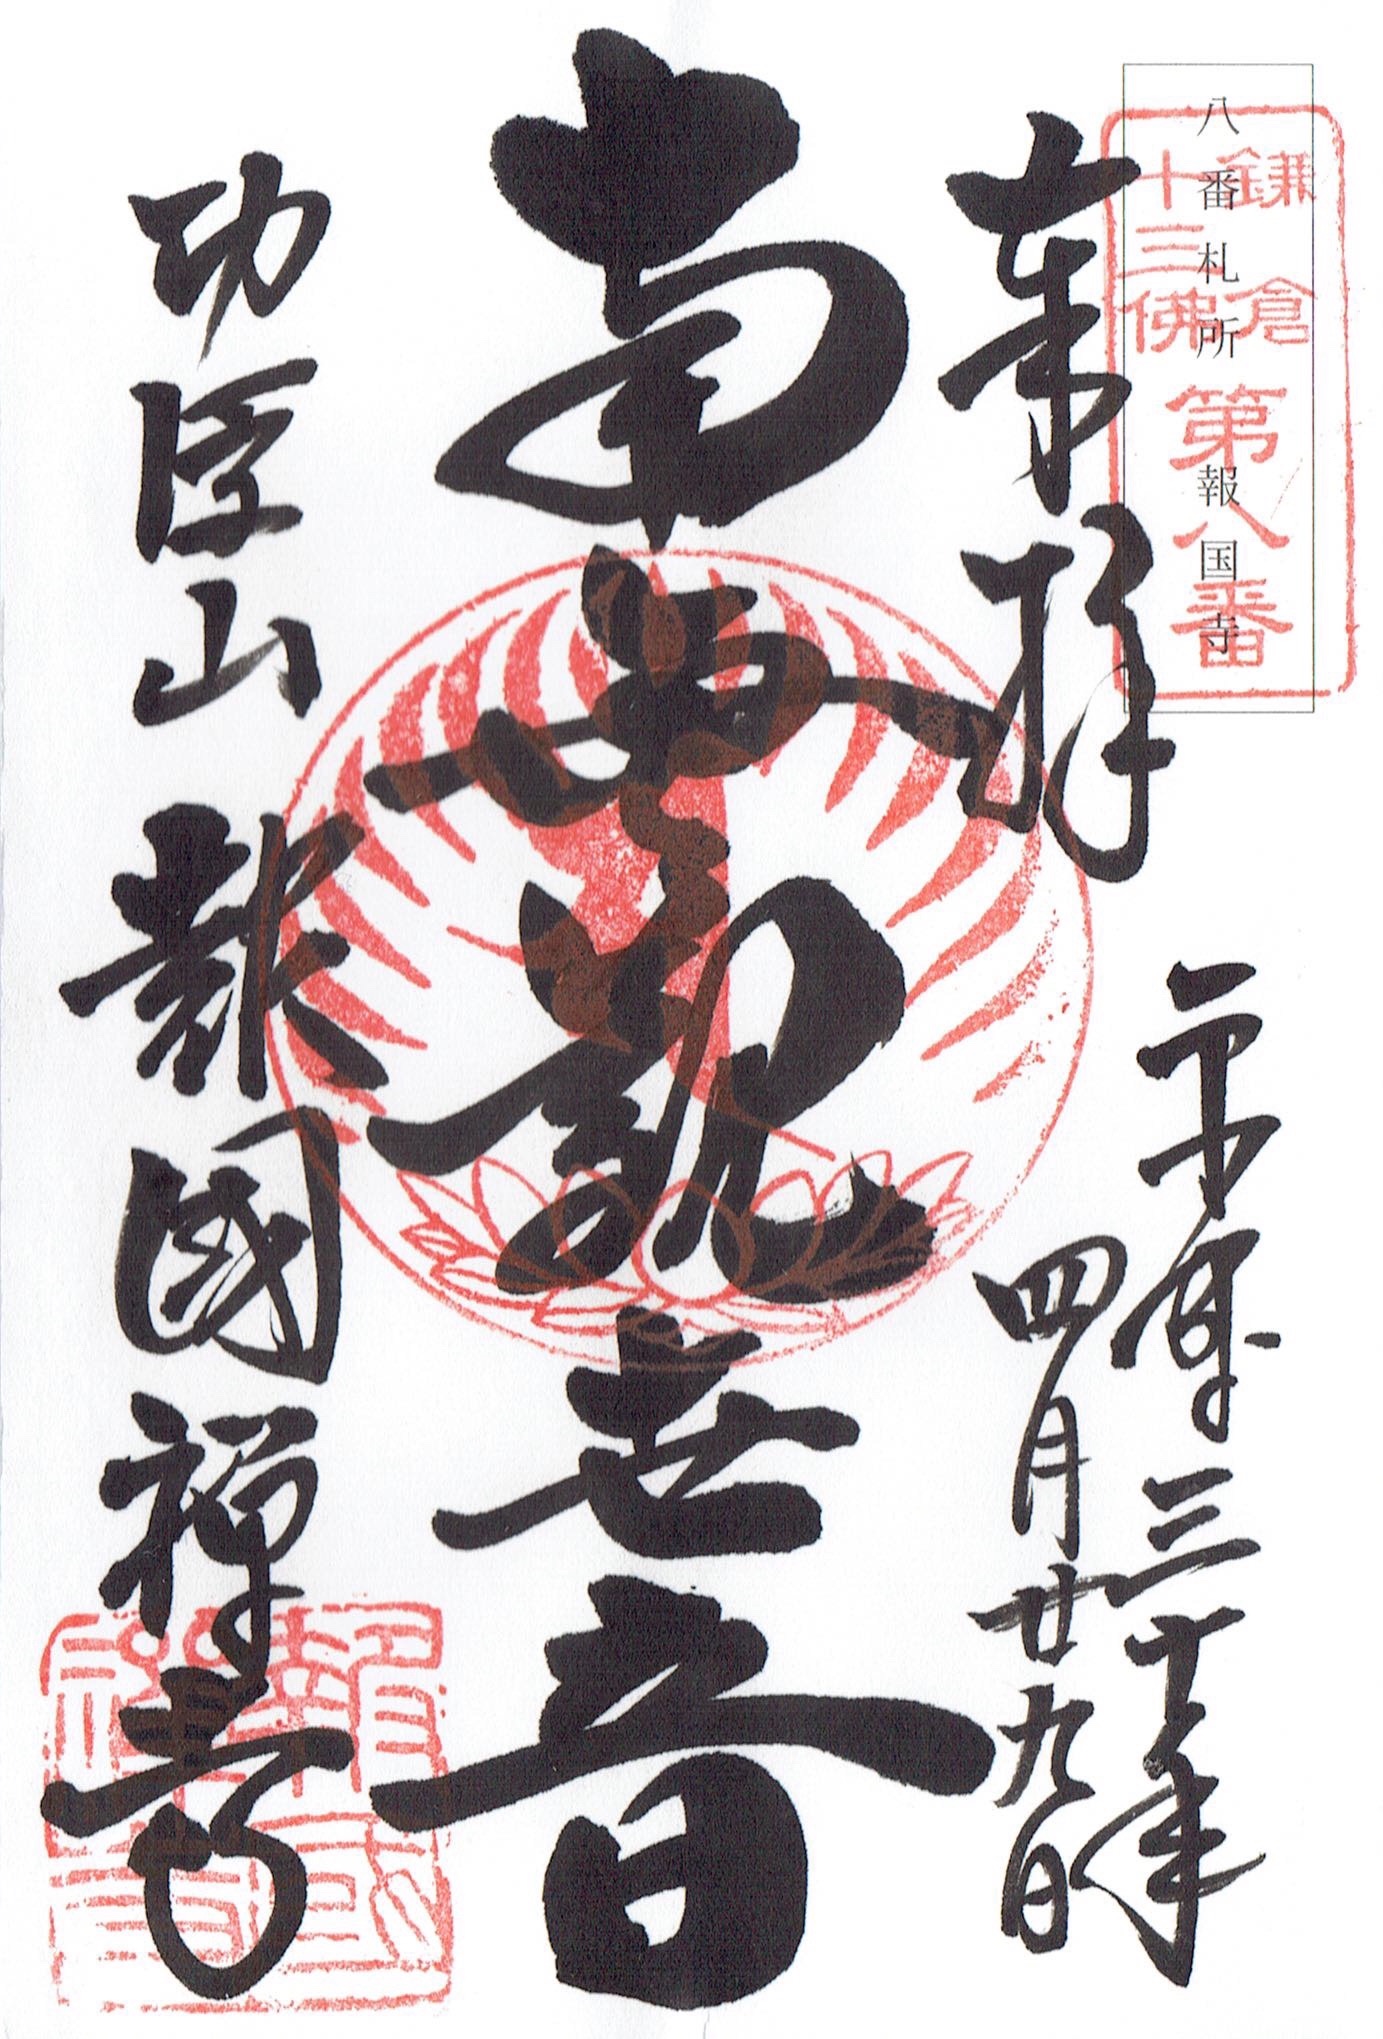 八番札所 報国寺
鎌倉
十三佛
第八番
奉拝
平成三十年
四月廿九日
南無観世音
功臣山 報國禅寺
報國
禅寺